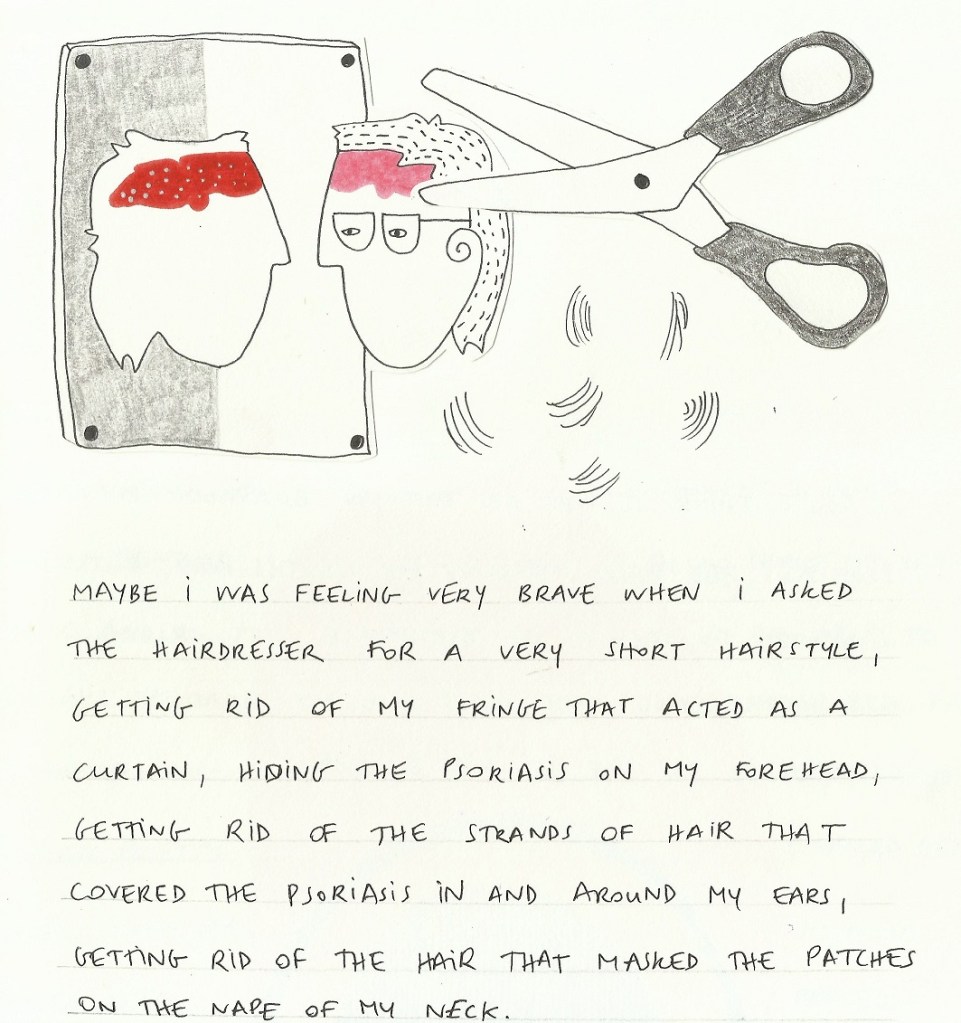 MAYBE i WAS FEELING VERY BRAVE WHEN i ASKED
THE HAIRDRESSER FOR A VERY SHORT HAIRSTYLE,
GETTING RID OF MY FRINGE THAT ACTED AS A
CURTAIN, HIDING THE PSORIASIS ON MY FOREHEAD,
GETTING RID OF THE STRANDS OF HAIR THAT
COVERED THE PSORIASIS IN AND AROUND MY EARS,
GETTING RID OF THE HAIR THAT MASKED THE PATCHES
ON THE NAPE OF MY NECK.